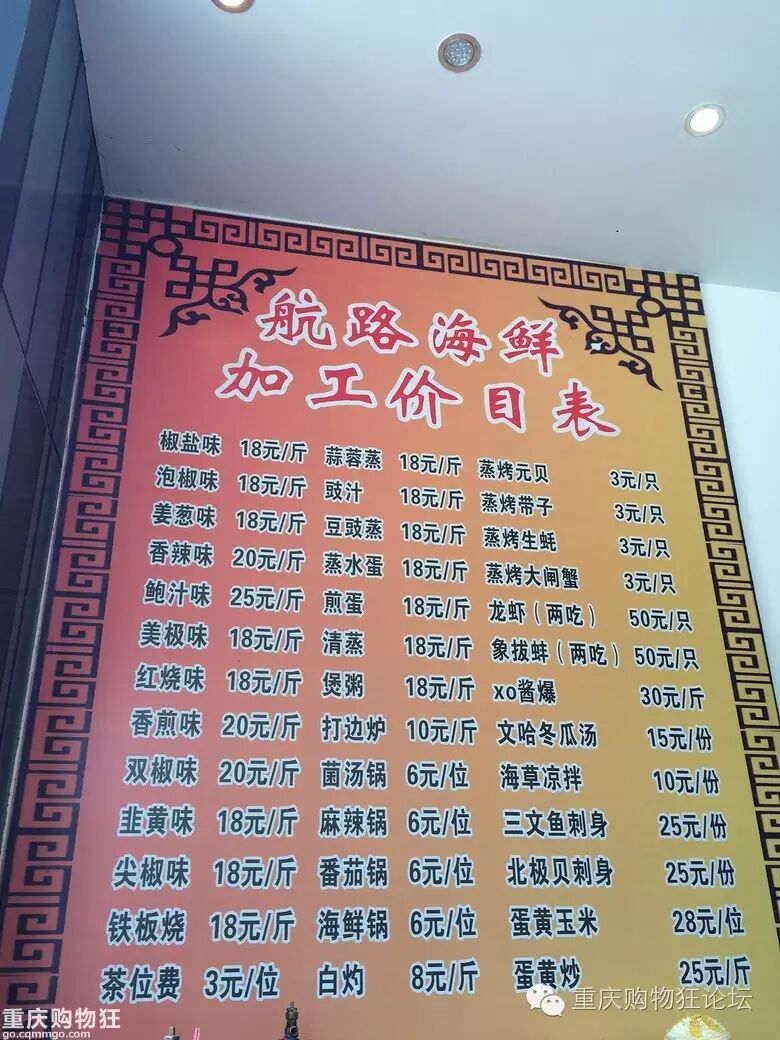 航路海鲜
加工价目表
椒盐味 18元/斤 蒜蓉蒸 18元/斤 蒸烤元贝 3元/只
泡椒味 18元/斤 豉汁 18元/斤 蒸烤带子 3元/只
姜葱味 18元/斤 豆豉蒸 18元/斤 蒸烤生蚝 3元/只
香辣味 20元/斤 蒸水蛋 18元/斤 蒸烤大闸蟹 3元/只
鲍汁味 25元/斤 煎蛋 18元/斤 龙虾（两吃） 50元/只
美极味 18元/斤 清蒸 18元/斤 象拔蚌（两吃） 50元/只
红烧味 18元/斤 煲粥 18元/斤 xo酱爆 30元/斤
香煎味 20元/斤 打边炉 10元/斤 文哈冬瓜汤 15元/份
双椒味 20元/斤 菌汤锅 6元/位 海草凉拌 10元/份
韭黄味 18元/斤 麻辣锅 6元/位 三文鱼刺身 25元/份
尖椒味 18元/斤 番茄锅 6元/位 北极贝刺身 25元/份
铁板烧 18元/斤 海鲜锅 6元/位 蛋黄玉米 28元/位
茶位费 3元/位 白灼 8元/斤 蛋黄炒 25元/斤
重庆购物狂论坛
重庆购物狂
go.cqmmgo.com